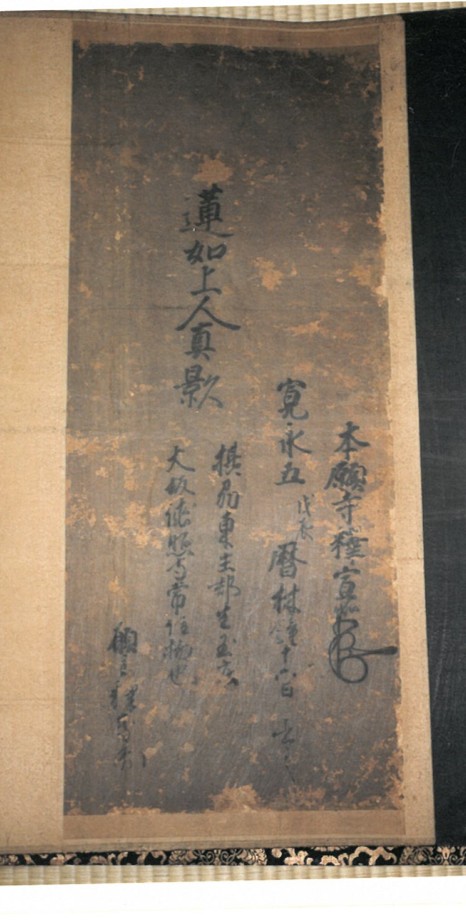 本願寺釋宣如
寛永五戊辰暦林鐘十六日
蓮如上人真影
摂州東生郡生玉庄
大坂 常住物也
願主釋